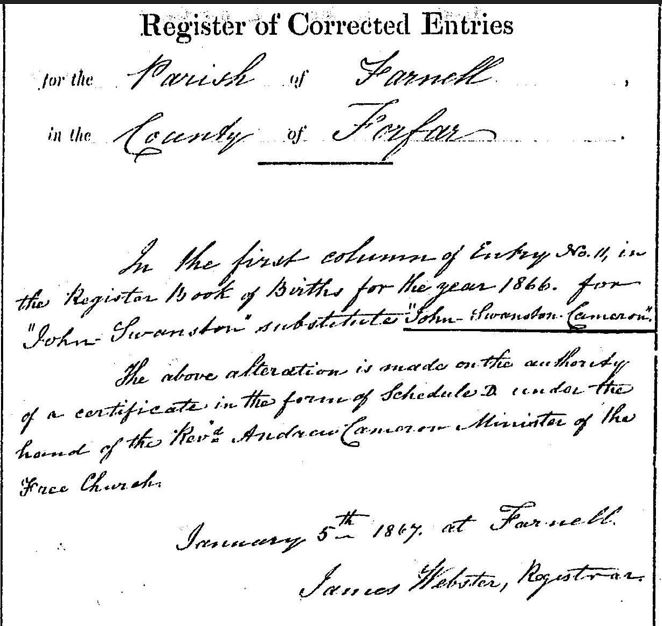 Register of Corrected Entries
for the Parish of Farnell,
in the County of Forfar.
In the first column of Entry No. 11, in
the Register Book of Births for the year 1866. for
"John Swanston" substitute "John Swanston Cameron".
The above alteration is made on the authority
of a certificate in the form of Schedule D. under the
hand of the Revd. Andrew Cameron Minister of the
Free Church.
January 5th 1867. at Farnell.
James Webster, Registrar.